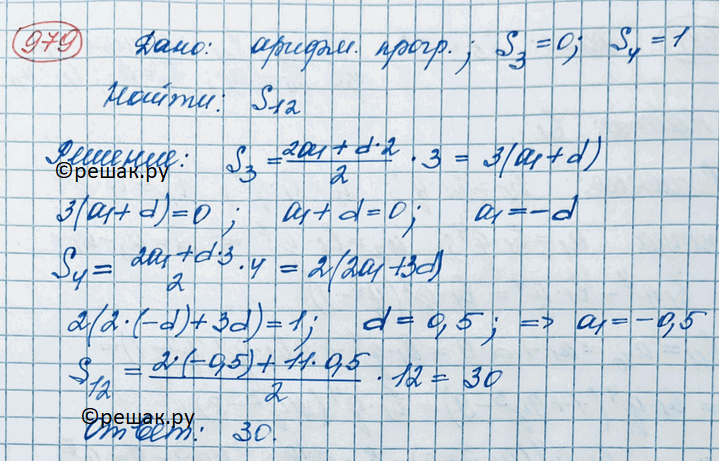 979 Дано: арифм. прогр.; S₃ = 0; S₄ = 1
Найти: S₁₂
Решение: S₃ = (2a₁ + d·2)/2 · 3 = 3(a₁ + d)
©решак.ру
3(a₁ + d) = 0; a₁ + d = 0; a₁ = -d
S₄ = (2a₁ + d·3)/2 · 4 = 2(2a₁ + 3d)
2(2·(-d) + 3d) = 1; d = 0,5; => a₁ = -0,5
S₁₂ = (2·(-0,5) + 11·0,5)/2 · 12 = 30
©решак.ру
Ответ: 30.